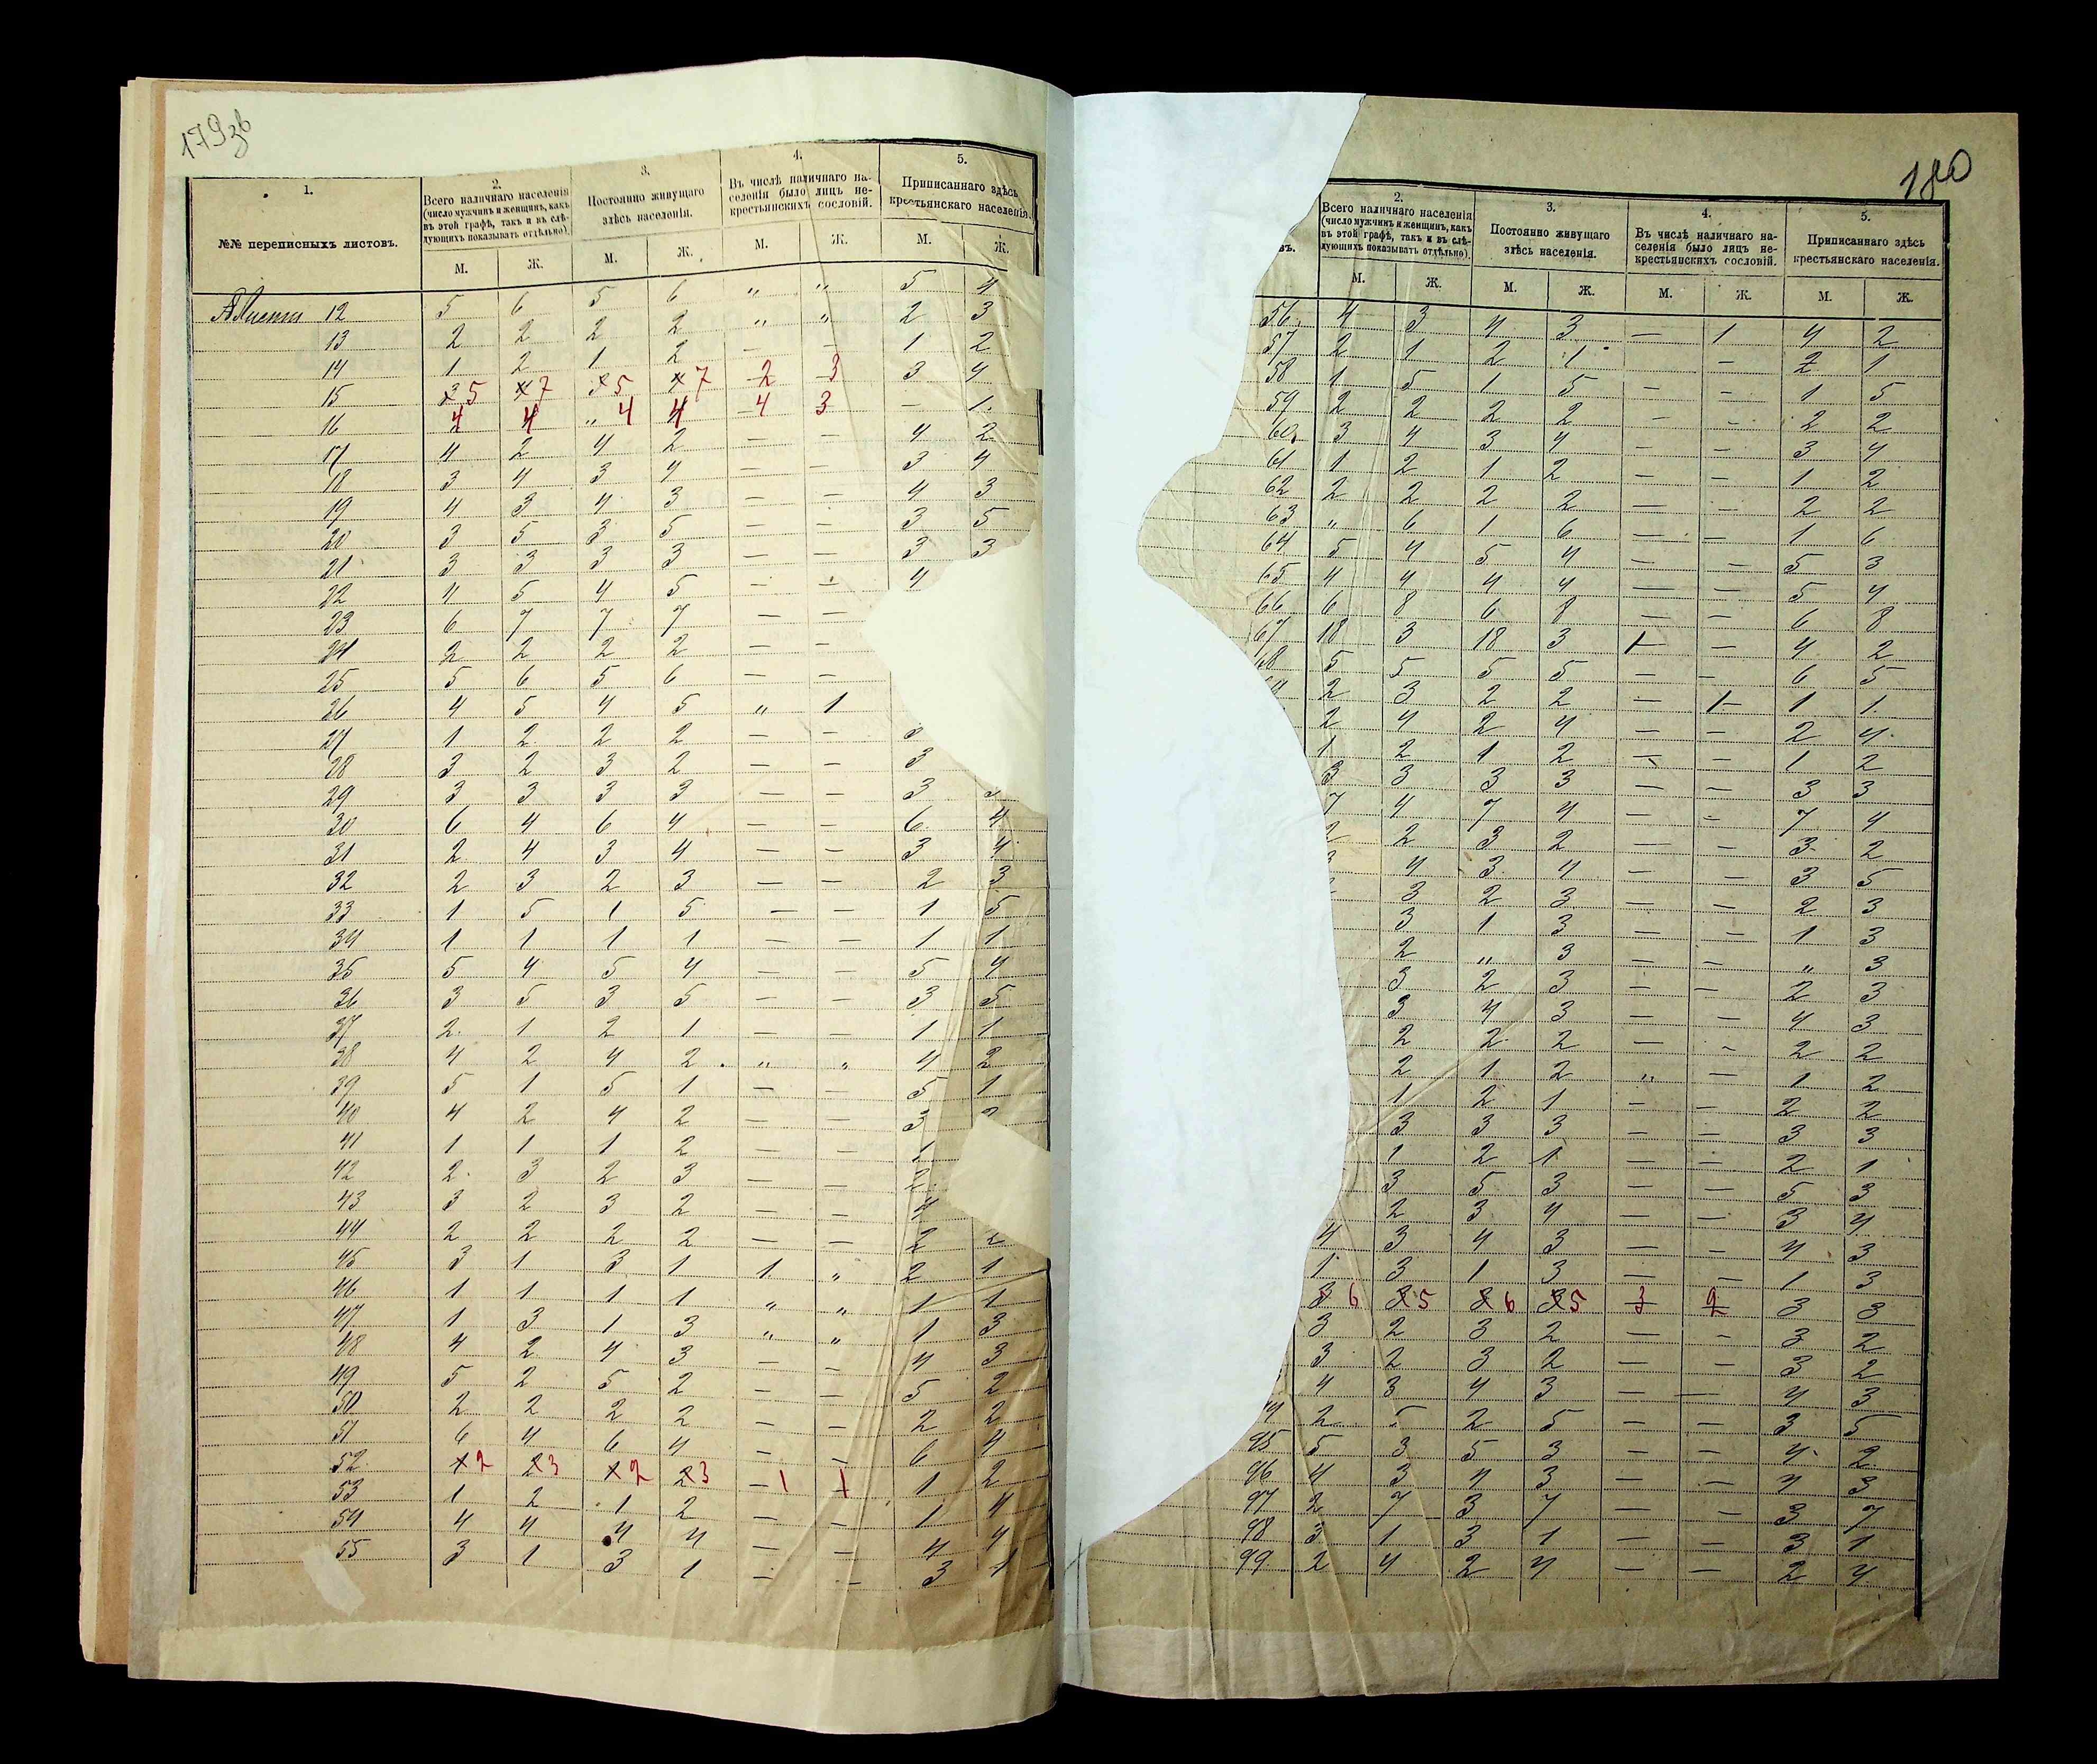 179зв
1.
№№ переписныхъ листовъ.
2.
Всего наличнаго населенія
(число мужчинъ и женщинъ, какъ
въ этой графѣ, такъ и въ слѣ-
дующихъ показывать отдѣльно).
3.
Постоянно живущаго
здѣсь населенія.
4.
Въ числѣ наличнаго на-
селенія было лицъ не-
крестьянскихъ сословій.
5.
Приписаннаго здѣсь
крестьянскаго населенія.
М. Ж. М. Ж. М. Ж. М. Ж.
12 5 6 5 6 „ „ 5 4
13 2 2 2 2 „ „ 2 3
14 1 2 1 2 — — 1 2
15 5 7 5 7 2 3 3 4
16 4 4 4 4 4 3 — 1
17 4 2 4 2 — — 4 2
18 3 4 3 4 — — 3 4
19 4 3 4 3 — — 4 3
20 3 5 3 5 — — 3 5
21 3 3 3 3 — — 3 3
22 4 5 4 5 — — 4
23 6 7 7 7 — —
24 2 2 2 2 — —
25 5 6 5 6 — —
26 4 5 4 5 „ 1
27 1 2 2 2 — —
28 3 2 3 2 — — 3
29 3 3 3 3 — — 3
30 6 4 6 4 — — 6 4
31 2 4 3 4 — — 3 4
32 2 3 2 3 — — 2 3
33 1 5 1 5 — — 1 5
34 1 1 1 1 — — 1 1
35 5 4 5 4 — — 5 4
36 3 5 3 5 — — 3 5
37 2 1 2 1 — — 1 1
38 4 2 4 2 „ „ 4 2
39 5 1 5 1 — — 5 1
40 4 2 4 2 — — 3 2
41 1 1 1 2 — — 1
42 2 3 2 3 — — 2
43 3 2 3 2 — — 4
44 2 2 2 2 — — 2 2
45 3 1 3 1 1 „ 2 1
46 1 1 1 1 „ „ 1 1
47 1 3 1 3 „ „ 1 3
48 4 2 4 3 — — 4 3
49 5 2 5 2 — — 5 2
50 2 2 2 2 — — 2 2
51 6 4 6 4 — — 6 4
52 2 3 2 3 — 1 1 1 2
53 1 2 1 2 — — 1 4
54 4 4 4 4 — — 4 4
55 3 1 3 1 — — 3 1
180
въ.
2.
Всего наличнаго населенія
(число мужчинъ и женщинъ, какъ
въ этой графѣ, такъ и въ слѣ-
дующихъ показывать отдѣльно).
3.
Постоянно живущаго
здѣсь населенія.
4.
Въ числѣ наличнаго на-
селенія было лицъ не-
крестьянскихъ сословій.
5.
Приписаннаго здѣсь
крестьянскаго населенія.
М. Ж. М. Ж. М. Ж. М. Ж.
56 4 3 4 3 — 1 4 2
57 2 1 2 1 — 2 1
58 1 5 1 5 — — 1 5
59 2 2 2 2 — — 2 2
60 3 4 3 4 — — 3 4
61 1 2 1 2 — — 1 2
62 2 2 2 2 — — 2 2
63 „ 6 1 6 — — 1 6
64 5 4 5 4 — — 5 3
65 4 4 4 4 — — 5 4
66 6 8 6 8 — — 6 8
67 18 3 18 3 1 — 4 2
68 5 5 5 5 — — 6 5
2 3 2 2 — 1 1 1
2 4 2 4 — — 2 4
1 2 1 2 — — 1 2
3 3 3 3 — — 3 3
7 4 7 4 — — 7 4
2 2 3 2 — — 3 2
3 4 3 4 — — 3 5
3 2 3 — — 2 3
3 1 3 — — 1 3
2 „ 3 — — „ 3
3 2 3 — — 2 3
3 4 3 — — 4 3
2 2 2 — — 2 2
2 1 2 „ — 1 2
1 2 1 — — 2 2
3 3 3 — — 3 3
1 2 1 — — 2 1
3 5 3 — — 5 3
2 3 4 — — 3 4
4 3 4 3 — — 4 3
1 3 1 3 — — 1 3
6 5 6 5 3 2 3 3
3 2 3 2 — — 3 2
3 2 3 2 — — 3 2
4 3 4 3 — — 4 3
2 5 2 5 — — 3 5
95 5 3 5 3 — — 4 2
96 4 3 4 3 — — 4 3
97 2 7 3 7 — — 3 7
98 3 1 3 1 — — 3 1
99 2 4 2 4 — — 2 4